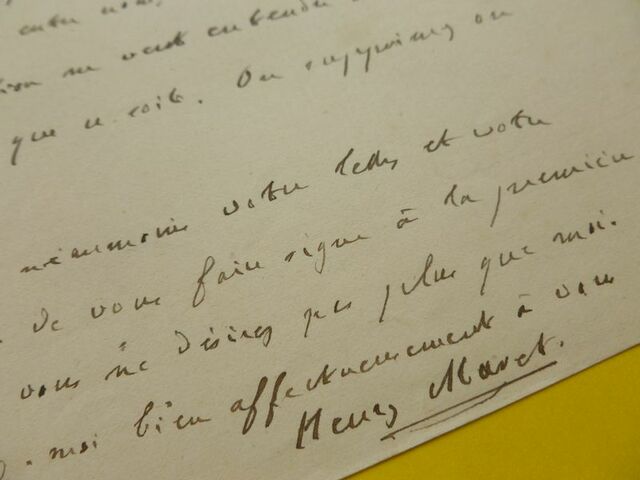 entre nous,
ne veut entendre
que ce soit. On supprimez on
néanmoins votre et votre
de vous faire signe à la première
vous ne désirez pas plus que moi.
moi bien affectueusement à vous
Henry Maret.